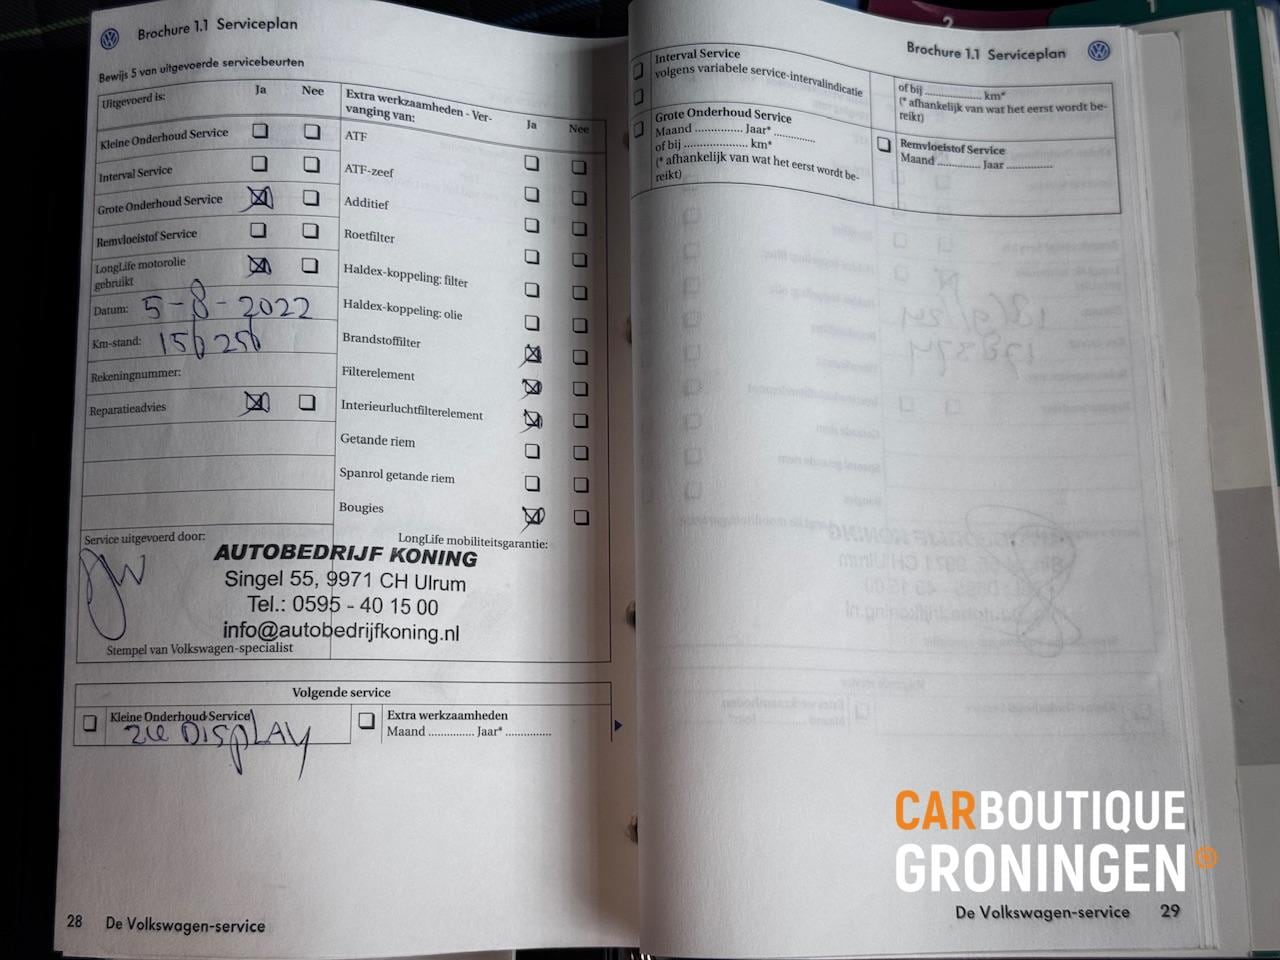 Brochure 1.1 Serviceplan
Bewijs 5 van uitgevoerde servicebeurten
Uitgevoerd is: Ja Nee
Kleine Onderhoud Service
Interval Service
Grote Onderhoud Service
Remvloeistof Service
LongLife motorolie
gebruikt
Datum: 5-8-2022
Km-stand:
Rekeningnummer:
Reparatieadvies
Extra werkzaamheden - Ver-
vanging van: Ja Nee
ATF
ATF-zeef
Additief
Roetfilter
Haldex-koppeling: filter
Haldex-koppeling: olie
Brandstoffilter
Filterelement
Interieurluchtfilterelement
Getande riem
Spanrol getande riem
Bougies
Service uitgevoerd door:
LongLife mobiliteitsgarantie:
AUTOBEDRIJF KONING
Singel 55, 9971 CH Ulrum
Tel.: 0595 - 40 15 00
info@autobedrijfkoning.nl
Stempel van Volkswagen-specialist
Volgende service
Kleine Onderhoud Service
zie DISPLAY
Extra werkzaamheden
Maand ............... Jaar* ...............
28 De Volkswagen-service
Brochure 1.1 Serviceplan
Interval Service
volgens variabele service-intervalindicatie
Grote Onderhoud Service
Maand ............... Jaar* .............
of bij .................... km*
(* afhankelijk van wat het eerst wordt be-
reikt)
of bij .................. km*
(* afhankelijk van wat het eerst wordt be-
reikt)
Remvloeistof Service
Maand ............. Jaar ...............
CARBOUTIQUE
GRONINGEN
De Volkswagen-service 29